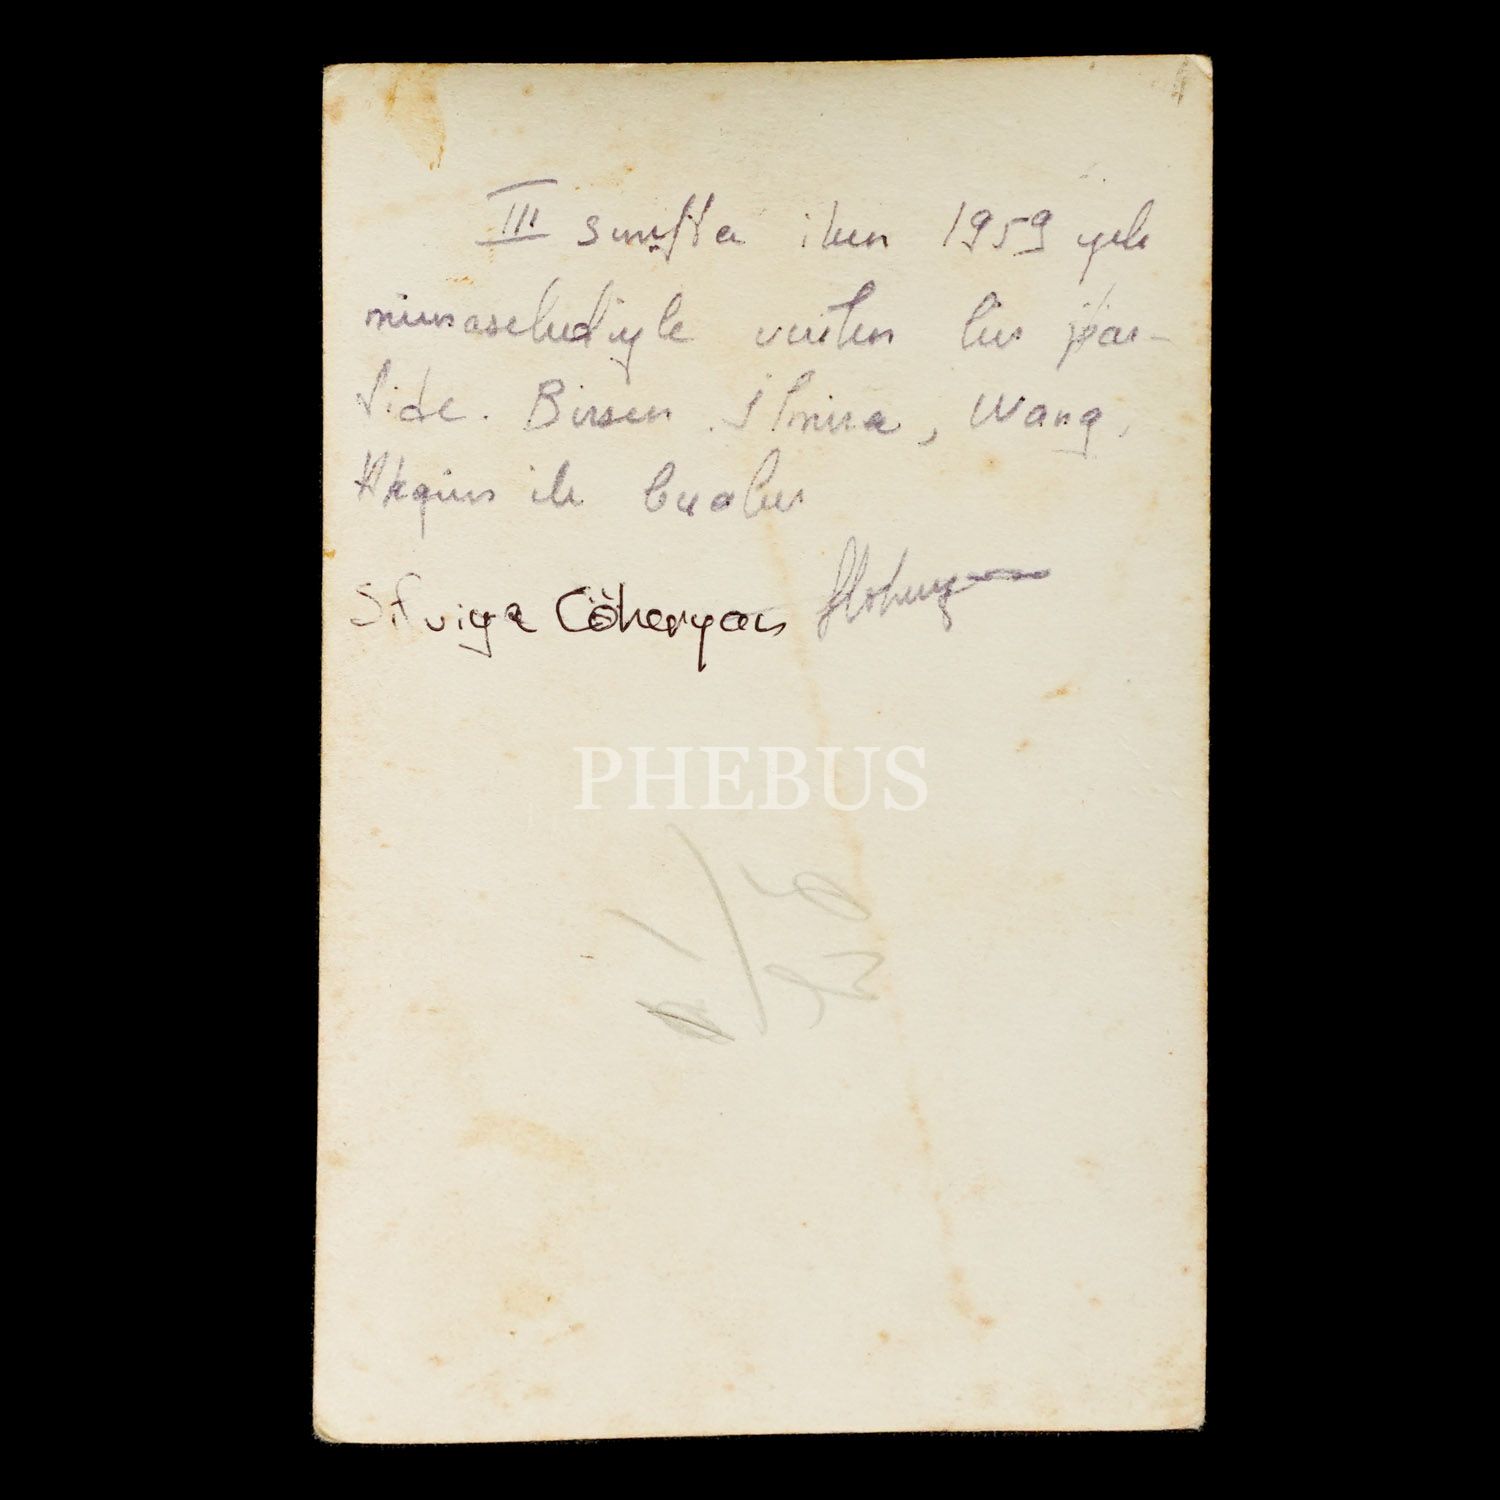 III sınıfta iken 1959 yılı
münasebetiyle verilen bir par-
tide. Birsen, Wang,
ile beraber
Silviya Cöheryan
PHEBUS